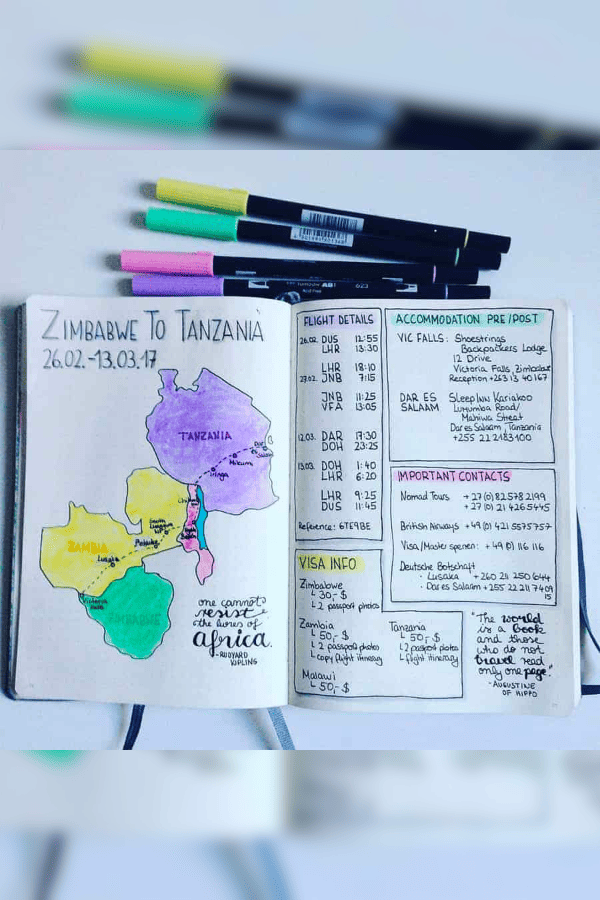 ZIMBABWE TO TANZANIA
26.02.-13.03.17
TANZANIA
Dar Es Salaam
Mikumi
Iringa
Chitimba
ZAMBIA
Lusaka
Petauke
Victoria Falls
ZIMBABWE
one cannot
resist
the lures of
africa.
-RUDYARD
KIPLING
FLIGHT DETAILS
26.02. DUS 12:55
LHR 13:30
LHR 18:10
27.02. JNB 7:15
JNB 11:25
VFA 13:05
12.03. DAR 17:30
DOH 23:25
13.03. DOH 1:40
LHR 6:20
LHR 9:25
DUS 11:45
Reference: 6TE9BE
VISA INFO
Zimbabwe
30,- $
2 passport photos
Zambia
50,- $
2 passport photos
copy flight itinerary
Malawi
50,- $
Tanzania
50,- $
2 passport photos
flight itinerary
ACCOMMODATION PRE/POST
VIC FALLS: Shoestrings
Backpackers Lodge
12 Drive
Victoria Falls, Zimbabwe
Reception +263 13 40 167
DAR ES SleepInn Kariakoo
SALAAM Lumumba Road/
Mahiwa Street
Dar es Salaam, Tanzania
+255 22 2183100
IMPORTANT CONTACTS
Nomad Tours +27(0) 82 578 2199
+27(0) 21 426 5445
British Airways +49(0) 421 5575757
Visa/Master sperren: +49(0) 116 116
Deutsche Botschaft
· Lusaka +260 211 250 644
· Dar es Salaam +255 22 211 7409
15
"The world
is a book
and those
who do not
travel read
only one page."
-AUGUSTINE
OF HIPPO